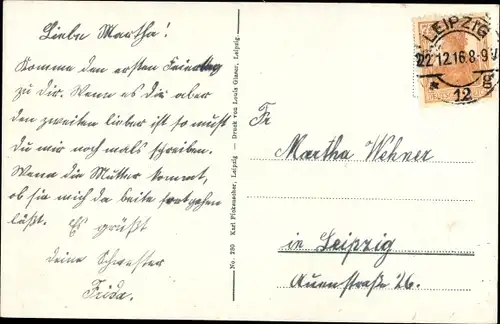 Liebe Martha!
Komme den ersten Feiertag
zu dir. Wenn es dir aber
den zweiten lieber ist so mußt
du mir noch mals schreiben.
Wenn die Mutter kommt,
ob sie mich da heite fortgehen
läßt. Es grüßt
deine Schwester
Frida.
No. 280 Karl Fickenscher, Leipzig – Druck von Louis Glaser, Leipzig.
LEIPZIG
22.12.16.8-9V
* 12
Fr
Martha Wehner
in Leipzig
Auenstraße 26.